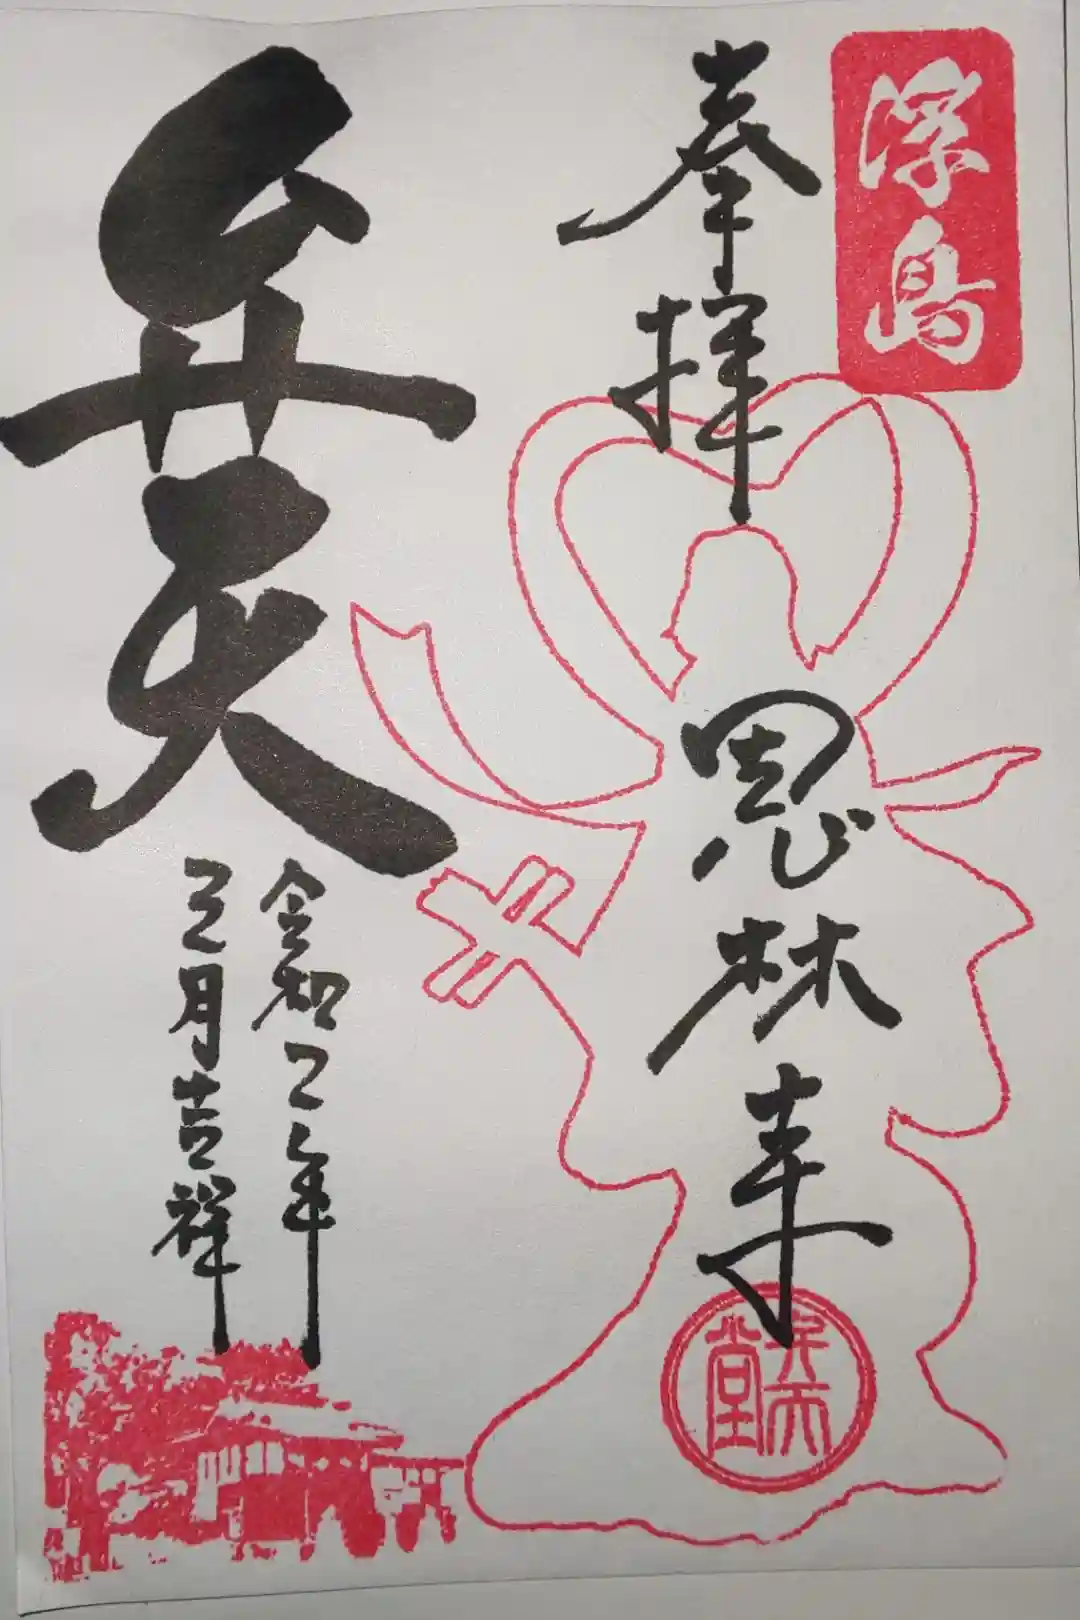 浮島
奉拝
恩林寺
弁天
令和二年
三月吉祥
弁天堂